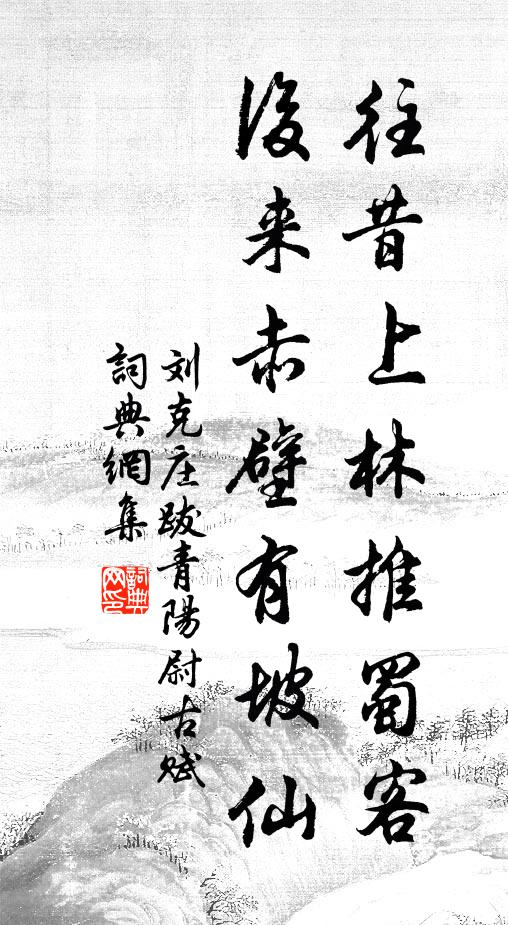 往昔上林推蜀客
後来赤壁有坡仙
刘克庄跋青陽尉古赋
詞典網集
詞典网印